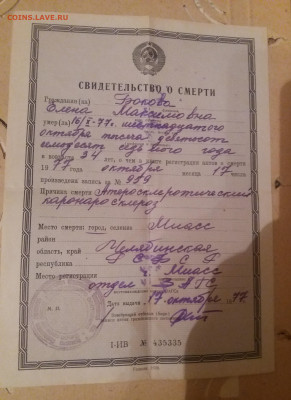 COINS.LAVE.RU
СВИДЕТЕЛЬСТВО О СМЕРТИ
Гражданин(ка) Бокова
Елена Максимовна
умер(ла) 16/X-77. шестнадцатого
октября тысяча девятьсот
семьдесят седьмого года
в возрасте 34 лет, о чем в книге регистрации актов о смерти
19 77 года октября месяца 17 числа
произведена запись за № 959
Причина смерти Атеросклеротический
каронаросклероз
Место смерти: город, селение Миасс
район
область, край Челябинская
республика РСФСР
Место регистрации г. Миасс
отдел ЗАГС
Дата выдачи 17 октября 1977 г.
М. П.
I-ИВ № 435335